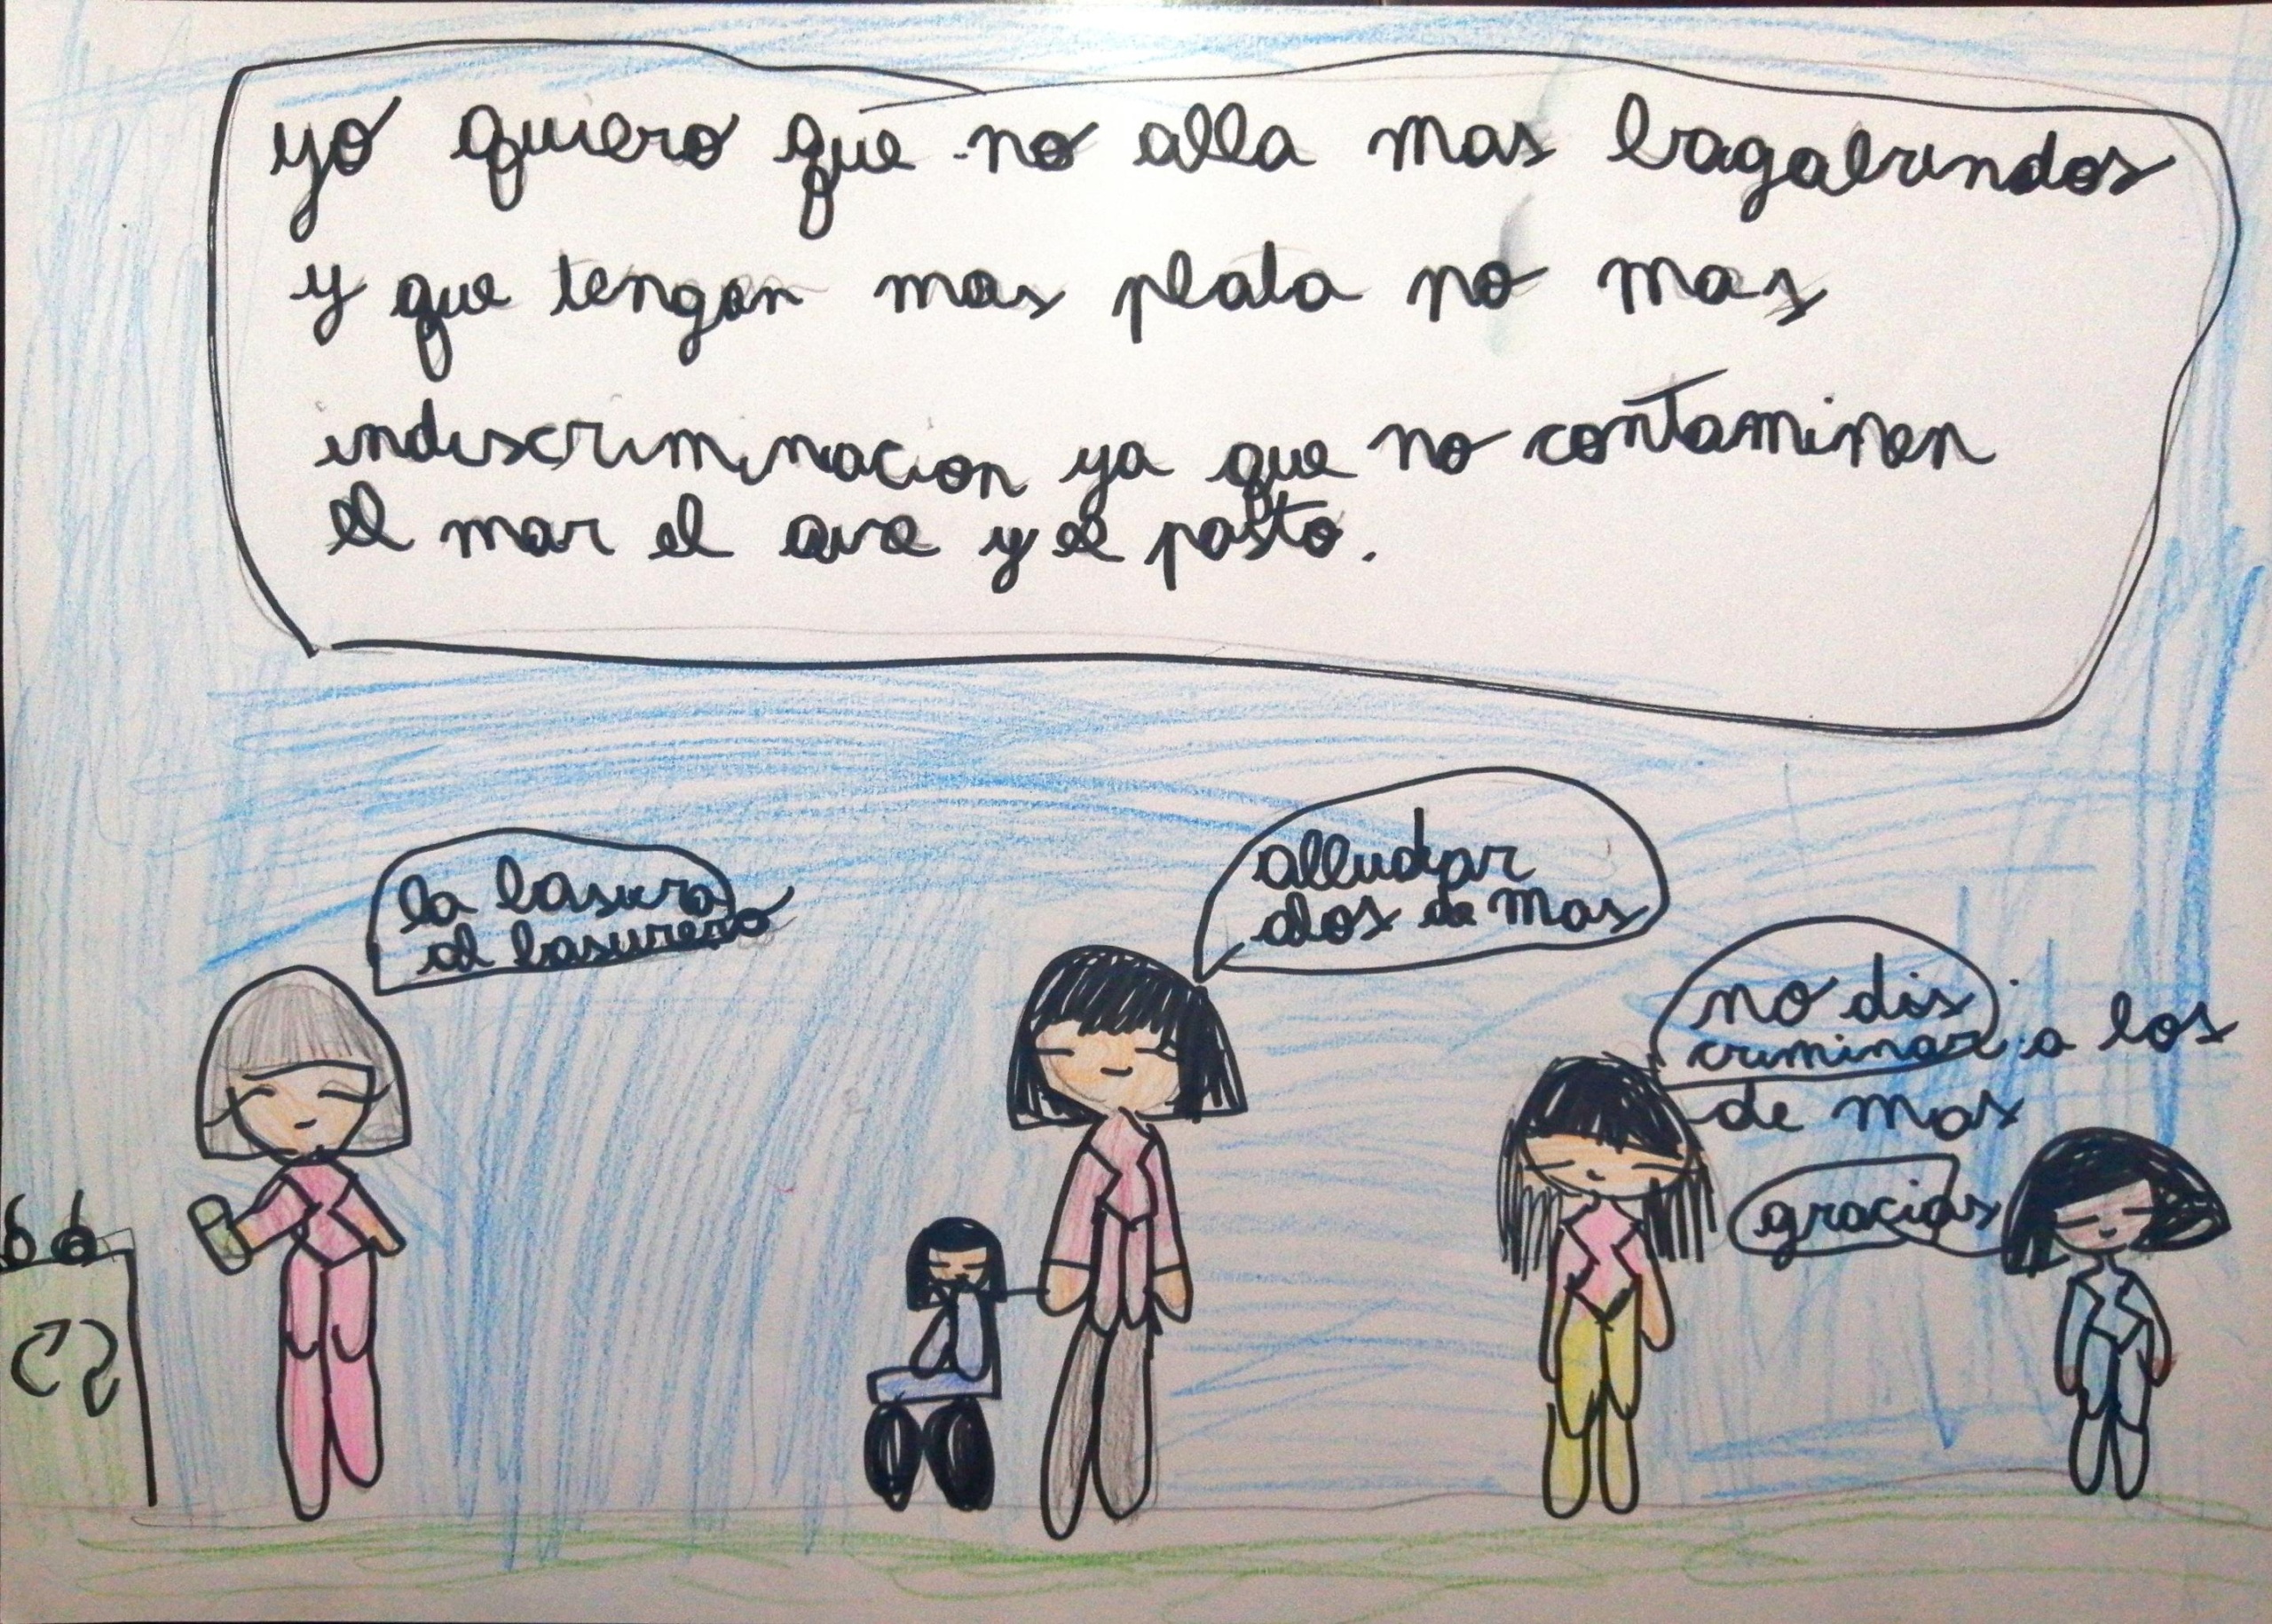 yo quiero que no alla mas bagabundos
y que tengan mas plata no mas
indiscriminacion ya que no contaminen
el mar el ave y el pasto.
la basura
al basurero
alludar
alos de mas
no dis
criminar a los
de mas
gracias